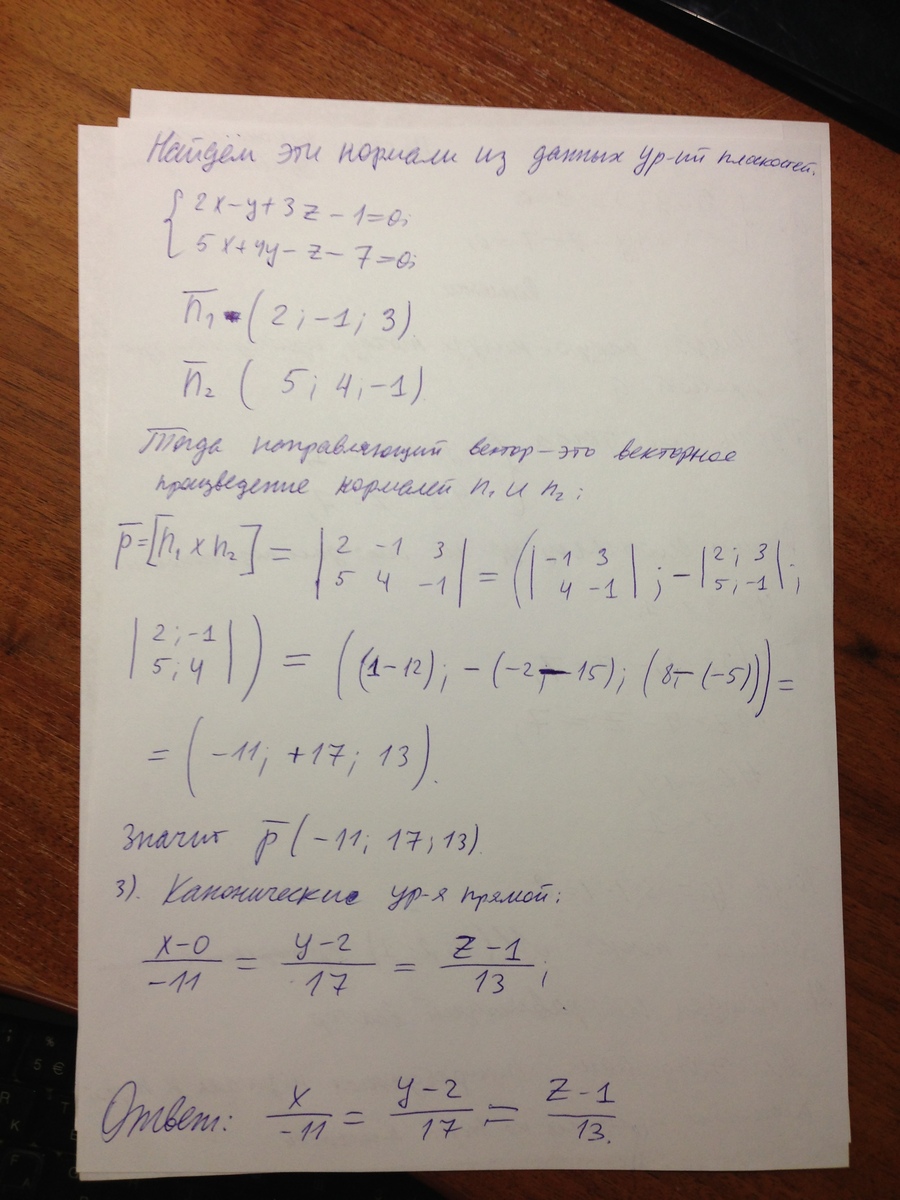 Найдём эти нормали из данных ур-ий плоскостей.
{ 2x-y+3z-1=0;
5x+4y-z-7=0;
n̅₁ (2;-1;3)
n̅₂ ( 5; 4;-1).
Тогда направляющий вектор-это векторное
произведение нормалей n₁ и n₂:
p̅=[n̅₁ x n₂] = |2 -1 3 / 5 4 -1| = (|-1 3 / 4 -1|; -|2; 3 / 5;-1|;
|2;-1 / 5;4|) = ((1-12); -(-2-15); (8-(-5))) =
= (-11; +17; 13).
Значит p̅ (-11; 17; 13).
3). Канонические ур-я прямой:
x-0/-11 = y-2/17 = z-1/13;
Ответ: x/-11 = y-2/17 = z-1/13.